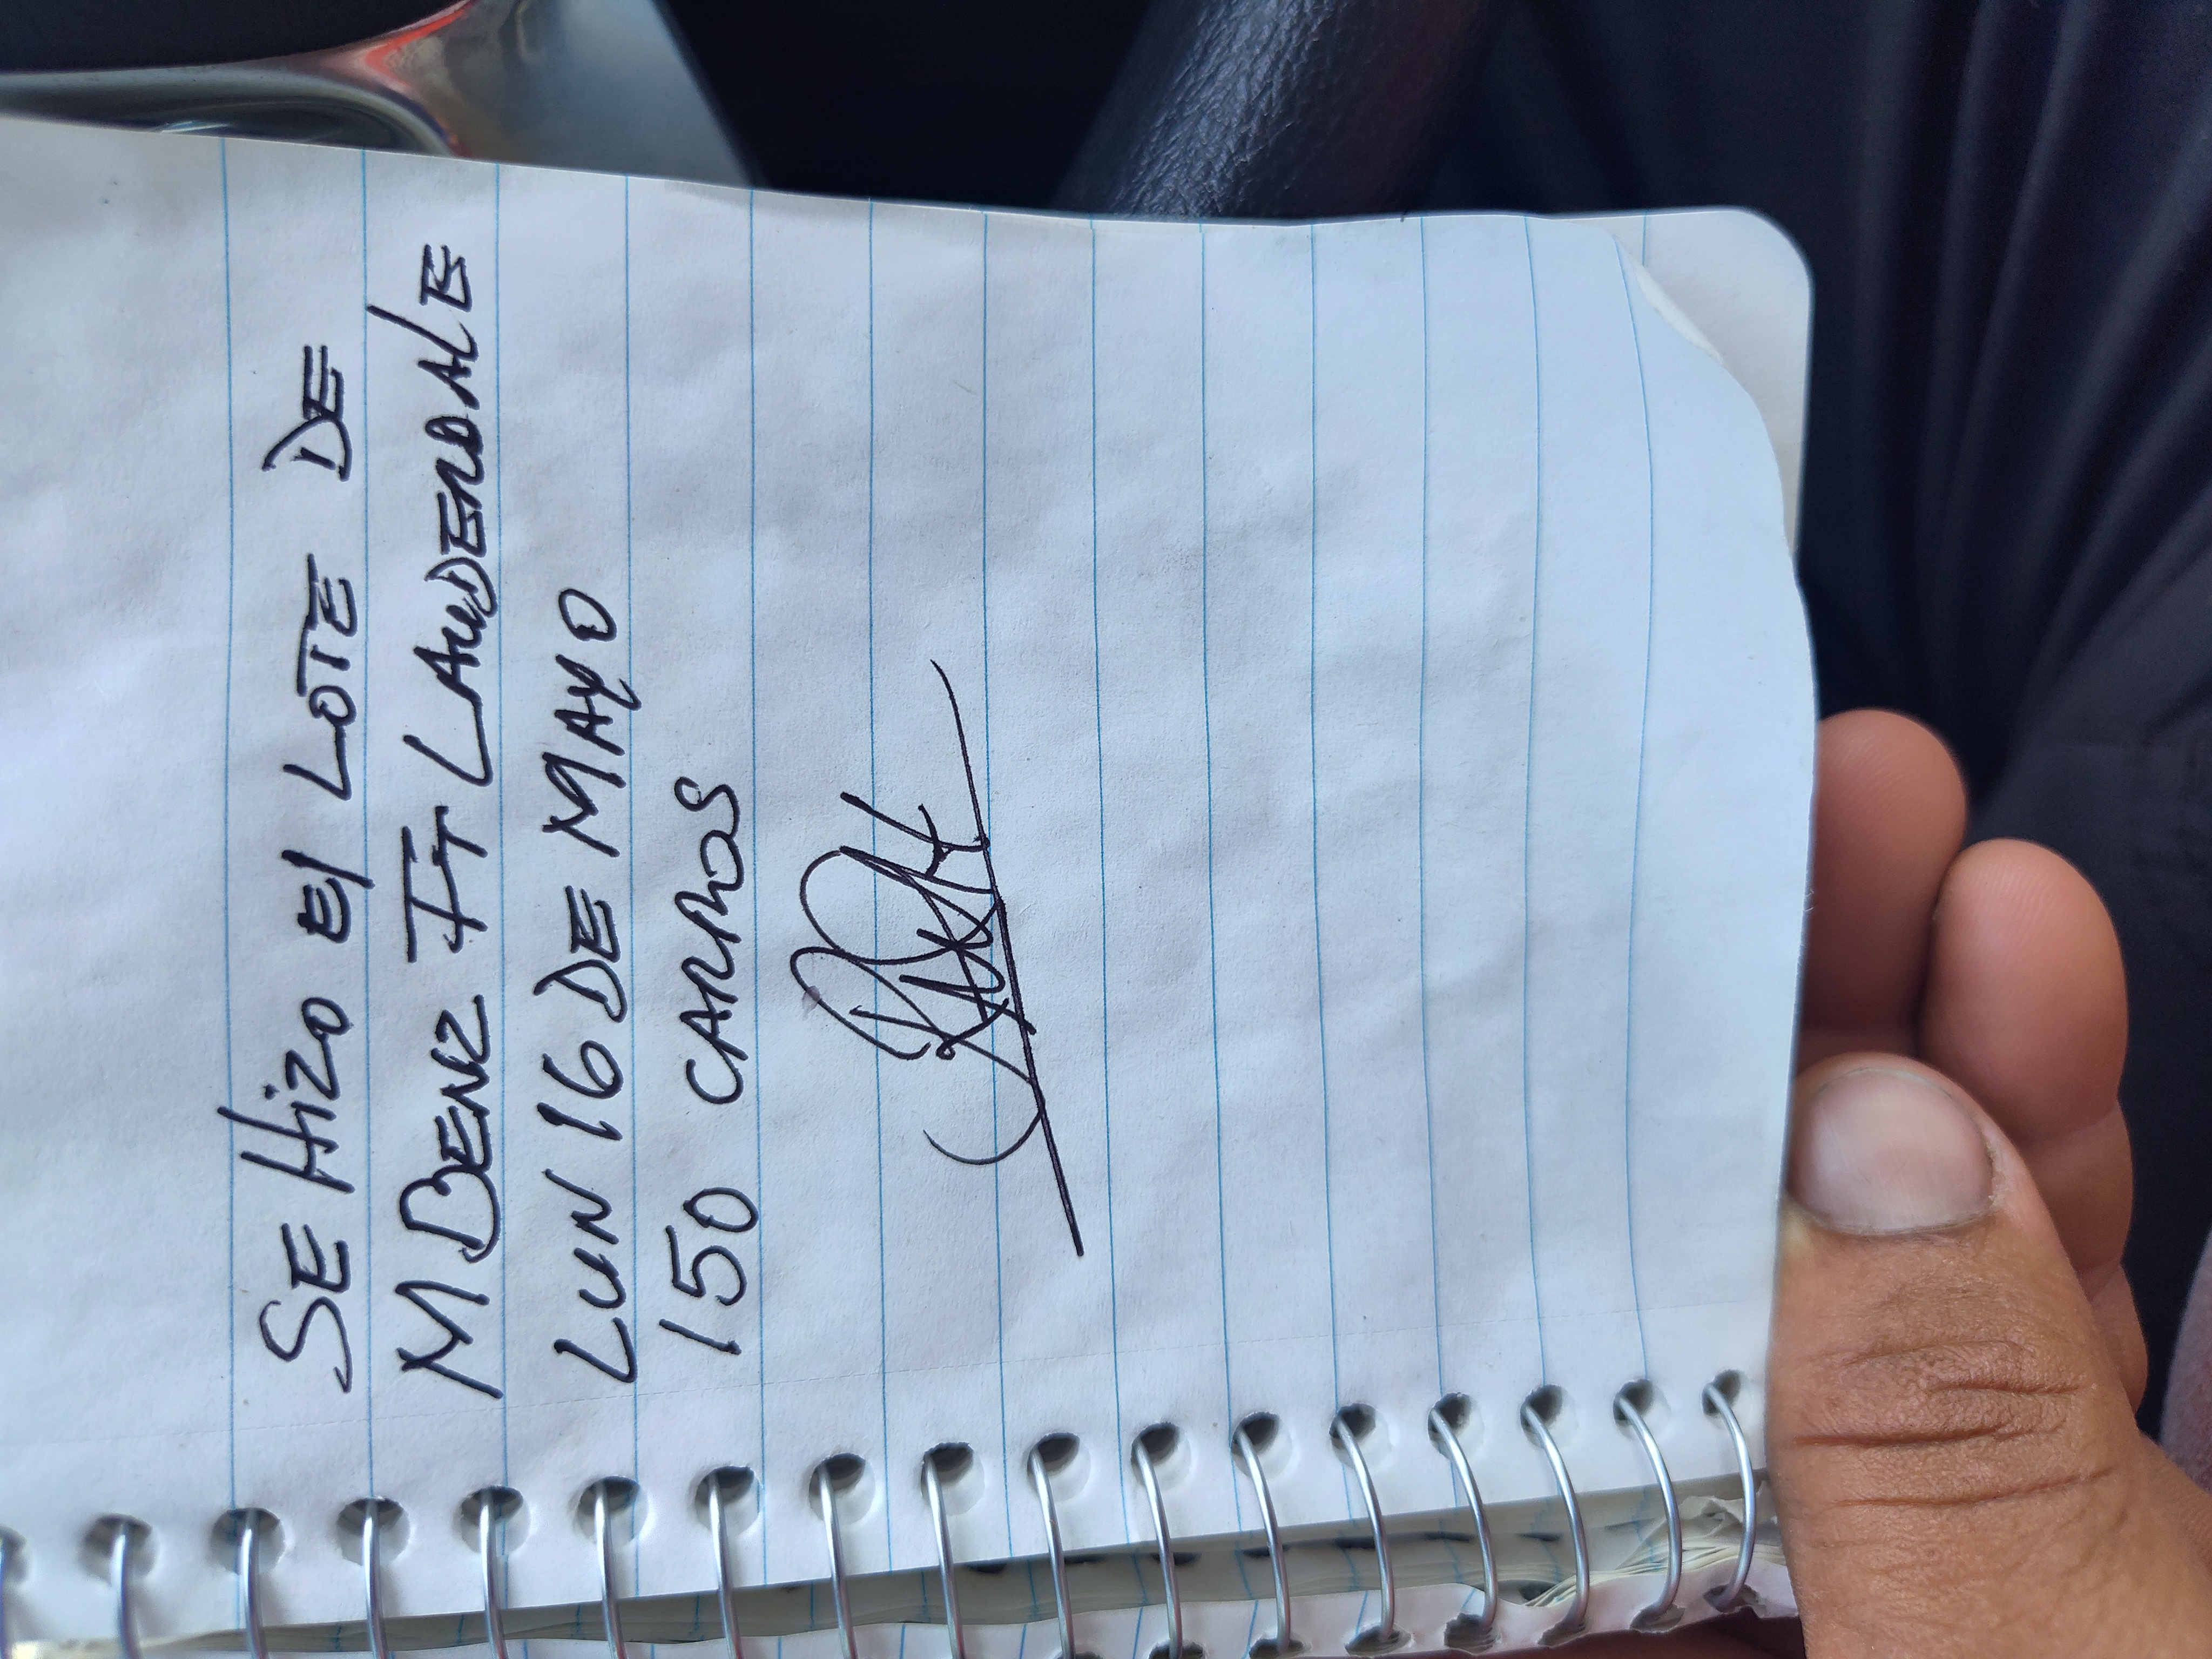 SE HizO El LOTE DE
M BENZ FT LAUDERDALE
LUN 16 DE MAYO
150 CARROS